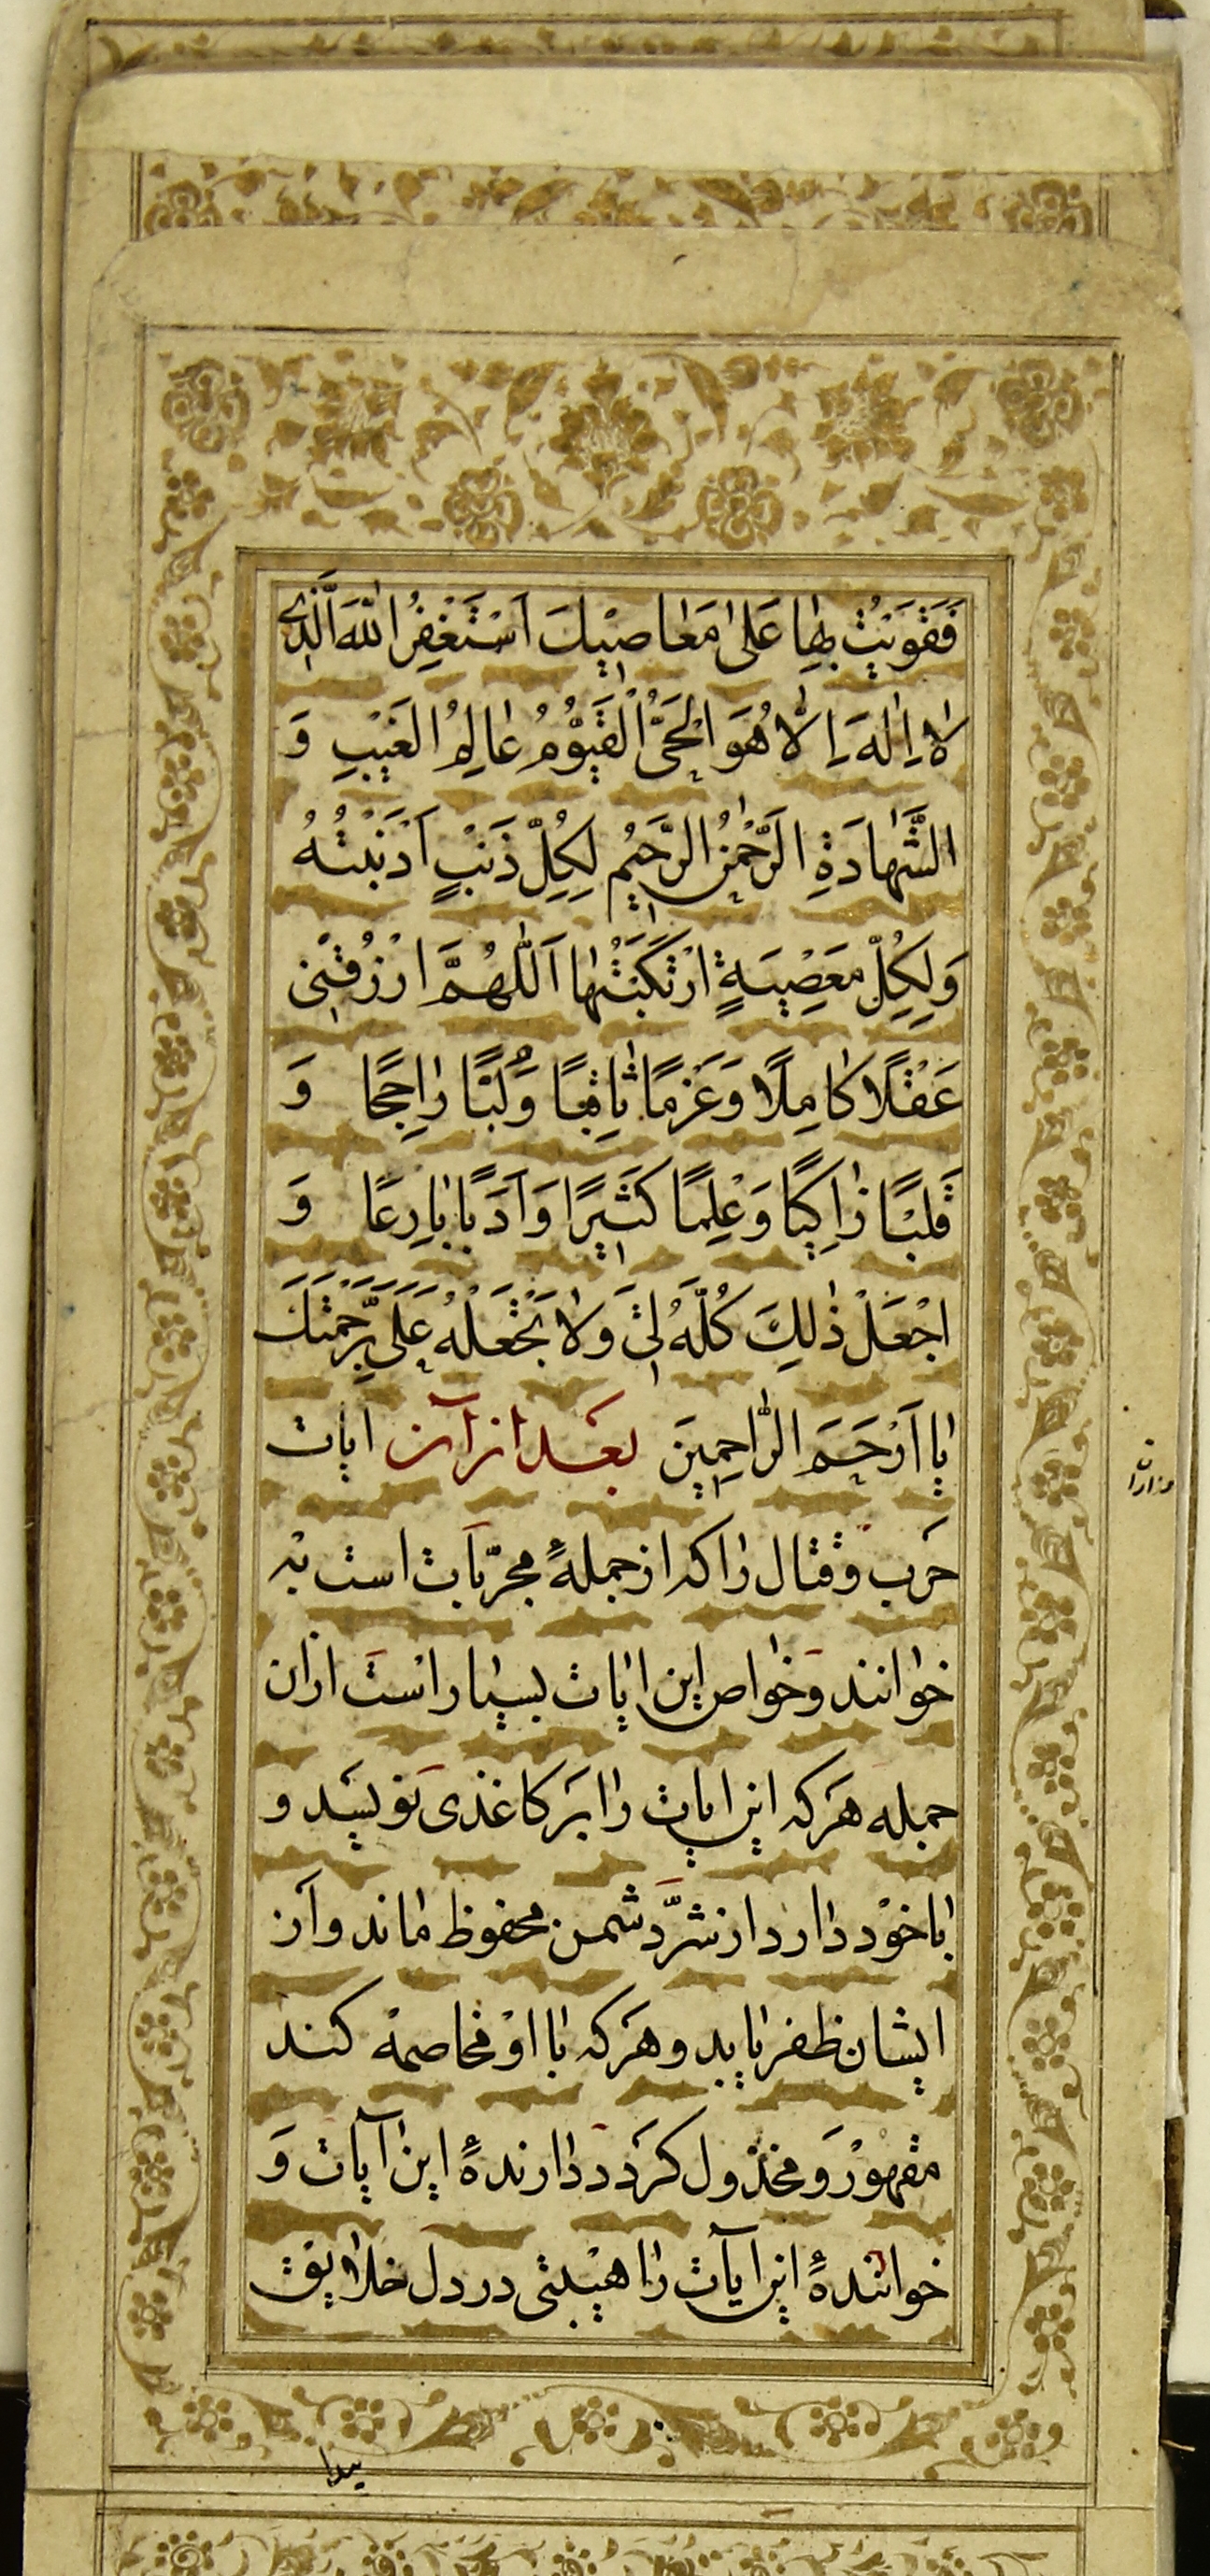 فَقَوَيْتُ بِهٰا عَلىٰ مَعٰاصيٖكَ اَسْتَغْفِرُ اللّٰهَ الَّذٖى
لاٰ اِلٰهَ اِلاّٰ هُوَ الْحَىُّ الْقَيُّوْمُ عٰالِمُ الْغَيْبِ وَ
الشَّهٰادَةِ الرَّحْمٰنُ الرَّحيٖمُ لِكُلِّ ذَنْبٍ اَذْنَبْتُهُ
وَلِكُلِّ مَعْصِيَةٍ ارْتَكَبْتُهٰا اَللّٰهُمَّ ارْزُقْنٖى
عَقْلًا كٰامِلًا وَعَزْمًا ثٰاقِبًا وَلُبًّا رٰاجِحًا وَ
قَلْبًا زٰاكِيًا وَعِلْمًا كَثيٖرًا وَاَدَبًا بٰارِعًا وَ
اجْعَلْ ذٰلِكَ كُلَّهُ لىٖ وَلاٰ تَجْعَلْهُ عَلَىَّ بِرَحْمَتِكَ
يٰا اَرْحَمَ الرّٰاحِميٖنَ بعَد از آن ايٰات
حَرب و قتال رٰا كه از جملهٔ مجرّبات است به
خوٰانند وَ خوٰاص اين ايٰات بسيٰار استَ ازٰان
جمله هَركه اين ايات رٰا بَر كاغذى نويسَد و
بٰا خوْد دٰارد از شرّ دشمن محفوظ مٰاند و آن
ايشان ظفر يٰابد و هَركه بٰا اوْ مخاصمهْ كند
مقهوْر وَ مخذول كرَدد دٰارندهٔ اين آيٰات وَ
خوانندهٔ اين ايآت رٰا هيْبتى در دل خلاٰيق
پيدا